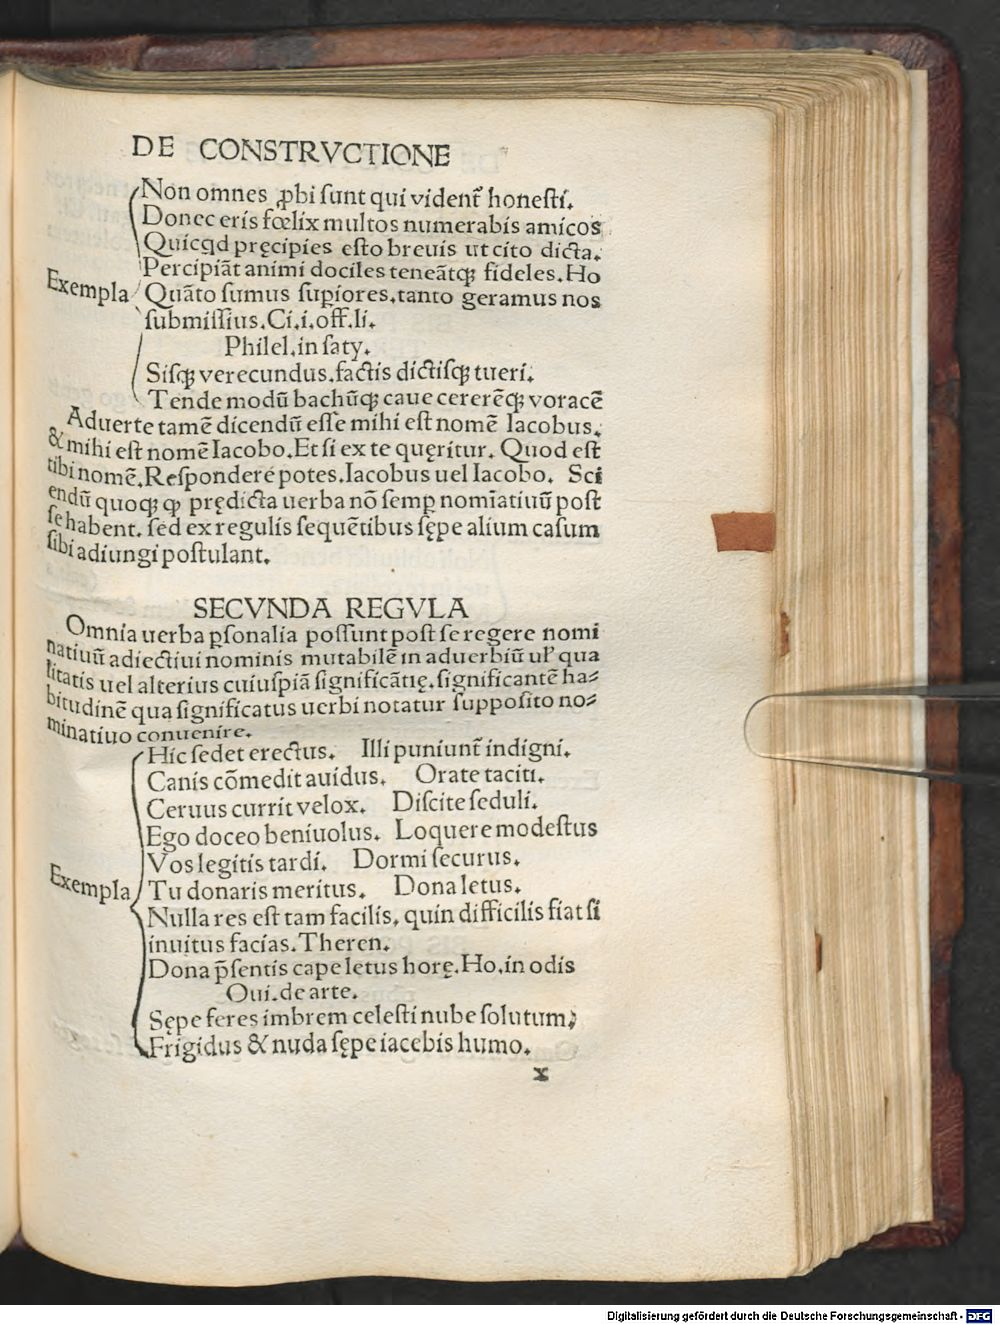 DE CONSTRVCTIONE
Non omnes ꝓbi ſunt qui vident᷑ honeſti.
Donec eris fœlix multos numerabis amicos
Quicqd pręcipies eſto breuis ut cito dicta.
Percipiāt animi dociles teneātqꝫ fideles. Ho
Exempla Quāto ſumus ſuꝑiores. tanto geramus nos
ſubmiſſius. Ci. i. off. li.
Philel. in ſaty.
Siſqꝫ verecundus. factis dictiſqꝫ tueri.
Tende modū bachūqꝫ caue cererēqꝫ voracē
Aduerte tamē dicendū eſſe mihi eſt nomē Iacobus.
& mihi eſt nomē Iacobo. Et ſi ex te quęritur. Quod eſt
tibi nomē. Reſpondere potes. Iacobus uel Iacobo. Sci
endū quoqꝫ ꝙ prędicta uerba nō ſemꝑ nomīatiuū poſt
ſe habent. ſed ex regulis ſequētibus ſępe alium caſum
ſibi adiungi poſtulant.
SECVNDA REGVLA
Omnia uerba ꝑſonalia poſſunt poſt ſe regere nomi
natiuū adiectiui nominis mutabilē in aduerbiū ul' qua
litatis uel alterius cuiuſpiā ſignificātię. ſignificantē ha⸗
bitudinē qua ſignificatus uerbi notatur ſuppoſito no⸗
minatiuo conuenire.
Hic ſedet erectus. Illi puniunt᷑ indigni.
Canis cōmedit auidus. Orate taciti.
Ceruus currit velox. Diſcite ſeduli.
Ego doceo beniuolus. Loquere modeſtus
Vos legitis tardi. Dormi ſecurus.
Exempla Tu donaris meritus. Dona letus.
Nulla res eſt tam facilis, quin difficilis fiat ſi
inuitus facias. Theren.
Dona p̄ſentis cape letus horę. Ho. in odis
Oui. de arte.
Sępe feres imbrem celeſti nube ſolutum;
Frigidus & nuda ſępe iacebis humo.
x
Digitalisierung gefördert durch die Deutsche Forschungsgemeinschaft - DFG